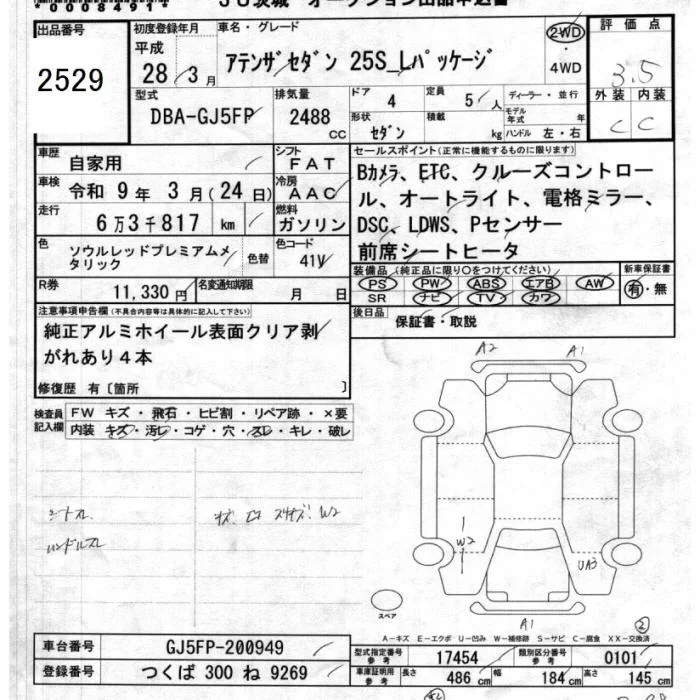 *0008491*
JU茨城 オークション出品申込書
出品番号
2529
初度登録年月
平成
28 / 3 月
車名・グレード
アテンザセダン 25S_Lパッケージ
2WD
・
4WD
評価点
3.5
外装 内装
C C
型式
DBA-GJ5FP
排気量
2488
cc
ドア 4
定員 5 人
形状 セダン
積載 kg
ディーラー・並行
モデル年式 年
ハンドル 左・右
車歴 自家用
シフト FAT
車検 令和 9 年 3 月 ( 24 日)
冷房 AAC
走行 6 万 3 千 817 km
燃料 ガソリン
色 ソウルレッドプレミアムメ
タリック
色替
色コード 41V
R券 11,330 円
名変通知期限 月 日
セールスポイント(正常に機能するものに限ります)
Bカメラ、ETC、クルーズコントロー
ル、オートライト、電格ミラー、
DSC、LDWS、Pセンサー
前席シートヒータ
装備品(純正品に限り○をつけてください)
PS PW ABS エアB AW
SR ナビ TV カワ
新車保証書
有・無
後日品 保証書・取説
注意事項申告欄(不具合内容等は具体的に記入して下さい)
純正アルミホイール表面クリア剥
がれあり4本
修復歴 有〔箇所 〕
検査員
記入欄
FW キズ・飛石・ヒビ割・リペア跡・×要
内装 キズ・汚レ・コゲ・穴・スレ・キレ・破レ
シートスレ
ハンドルスレ
W2
A2
A1
W2
UA3
A1
②
スペア
A-キズ E-エクボ U-凹み W-補修跡 S-サビ C-腐食 XX-交換済
車台番号 GJ5FP-200949
登録番号 つくば 300 ね 9269
型式指定番号
参考
17454
類別区分番号
参考
0101
車庫証明用
参考
長さ 486 cm 幅 184 cm 高さ 145 cm